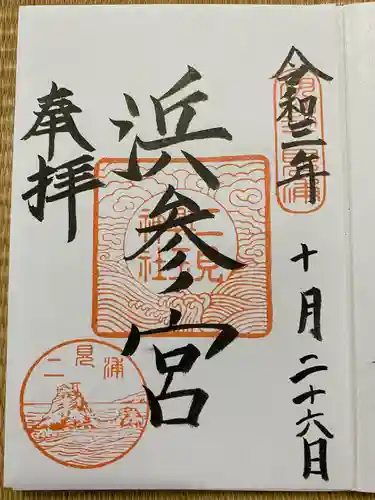 令和三年
十月二十六日
浜参宮
奉拝
二見
興玉
神社
二見浦